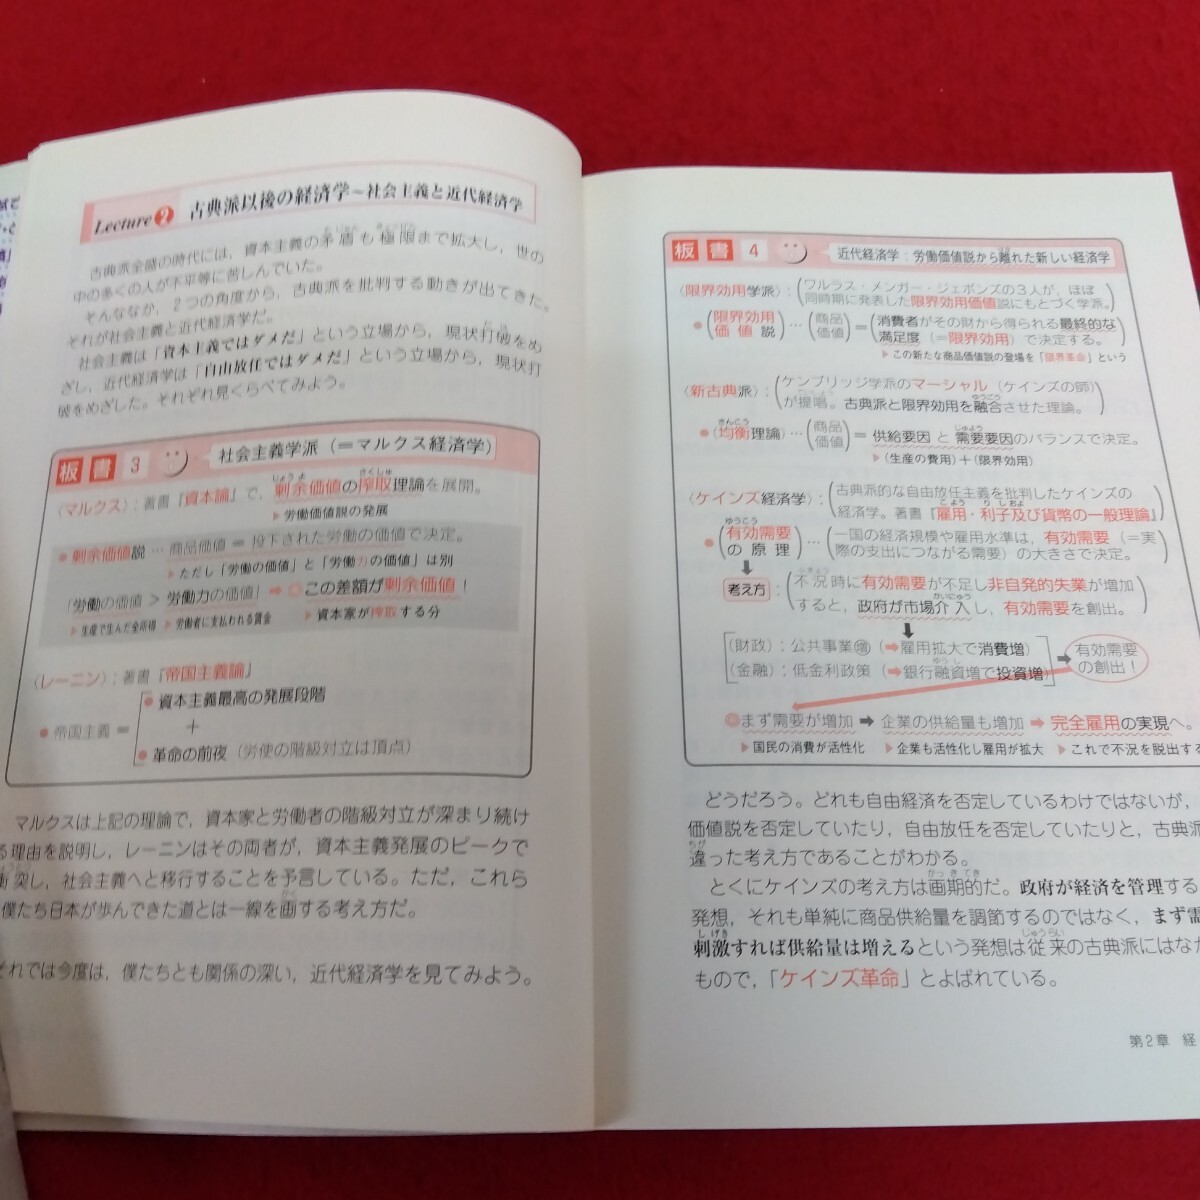 Lecture 2 古典派以後の経済学～社会主義と近代経済学
古典派全盛の時代には，資本主義の矛盾も極限まで拡大し，世の
中の多くの人が不平等に苦しんでいた。
そんななか，2つの角度から，古典派を批判する動きが出てきた。
それが社会主義と近代経済学だ。
社会主義は「資本主義ではダメだ」という立場から，現状打破をめ
ざし，近代経済学は「自由放任ではダメだ」という立場から，現状打
破をめざした。それぞれ見くらべてみよう。
板書 3 社会主義学派（＝マルクス経済学）
〈マルクス〉：著書『資本論』で，剰余価値の搾取理論を展開。
じょうよ さくしゅ
▶労働価値説の発展
●剰余価値説…商品価値＝投下された労働の価値で決定。
▶ただし「労働の価値」と「労働力の価値」は別
「労働の価値＞労働力の価値」➡◎この差額が剰余価値！
▶生産で生んだ全所得 ▶労働者に支払われる賃金 ▶資本家が搾取する分
〈レーニン〉：著書『帝国主義論』
●帝国主義＝
●資本主義最高の発展段階
＋
●革命の前夜（労使の階級対立は頂点）
マルクスは上記の理論で，資本家と労働者の階級対立が深まり続け
る理由を説明し，レーニンはその両者が，資本主義発展のピークで
衝突し，社会主義へと移行することを予言している。ただ，これら
僕たち日本が歩んできた道とは一線を画する考え方だ。
それでは今度は，僕たちとも関係の深い，近代経済学を見てみよう。
板書 4 近代経済学：労働価値説から離れた新しい経済学
〈限界効用学派〉：ワルラス・メンガー・ジェボンズの3人が，ほぼ
同時期に発表した限界効用価値説にもとづく学派。
●（限界効用価値説）…（商品価値）＝（消費者がその財から得られる最終的な
満足度（＝限界効用）で決定する。）
▶この新たな商品価値説の登場を「限界革命」という
〈新古典派〉：（ケンブリッジ学派のマーシャル（ケインズの師）
が提唱。古典派と限界効用を融合させた理論。）
ゆうごう
きんこう じゅよう
●（均衡理論）…（商品価値）＝供給要因と需要要因のバランスで決定。
▶（生産の費用）＋（限界効用）
〈ケインズ経済学〉：（古典派的な自由放任主義を批判したケインズの
経済学。著書『雇用・利子及び貨幣の一般理論』）
こよう りしおよ
ゆうこう
●（有効需要の原理）…（一国の経済規模や雇用水準は，有効需要（＝実
際の支出につながる需要）の大きさで決定。）
考え方：（不況時に有効需要が不足し非自発的失業が増加
すると，政府が市場介入し，有効需要を創出。）
ふきょう
かいにゅう
（財政）：公共事業増（➡雇用拡大で消費増）
（金融）：低金利政策（➡銀行融資増で投資増）
ゆうし
➡有効需要の創出！
◎まず需要が増加➡企業の供給量も増加➡完全雇用の実現へ。
▶国民の消費が活性化 ▶企業も活性化し雇用が拡大 ▶これで不況を脱出する
どうだろう。どれも自由経済を否定しているわけではないが，
価値説を否定していたり，自由放任を否定していたりと，古典派
違った考え方であることがわかる。
ちが
かっきてき
とくにケインズの考え方は画期的だ。政府が経済を管理する
発想，それも単純に商品供給量を調節するのではなく，まず需
しげき じゅうらい
刺激すれば供給量は増えるという発想は従来の古典派にはな
もので，「ケインズ革命」とよばれている。
第2章 経